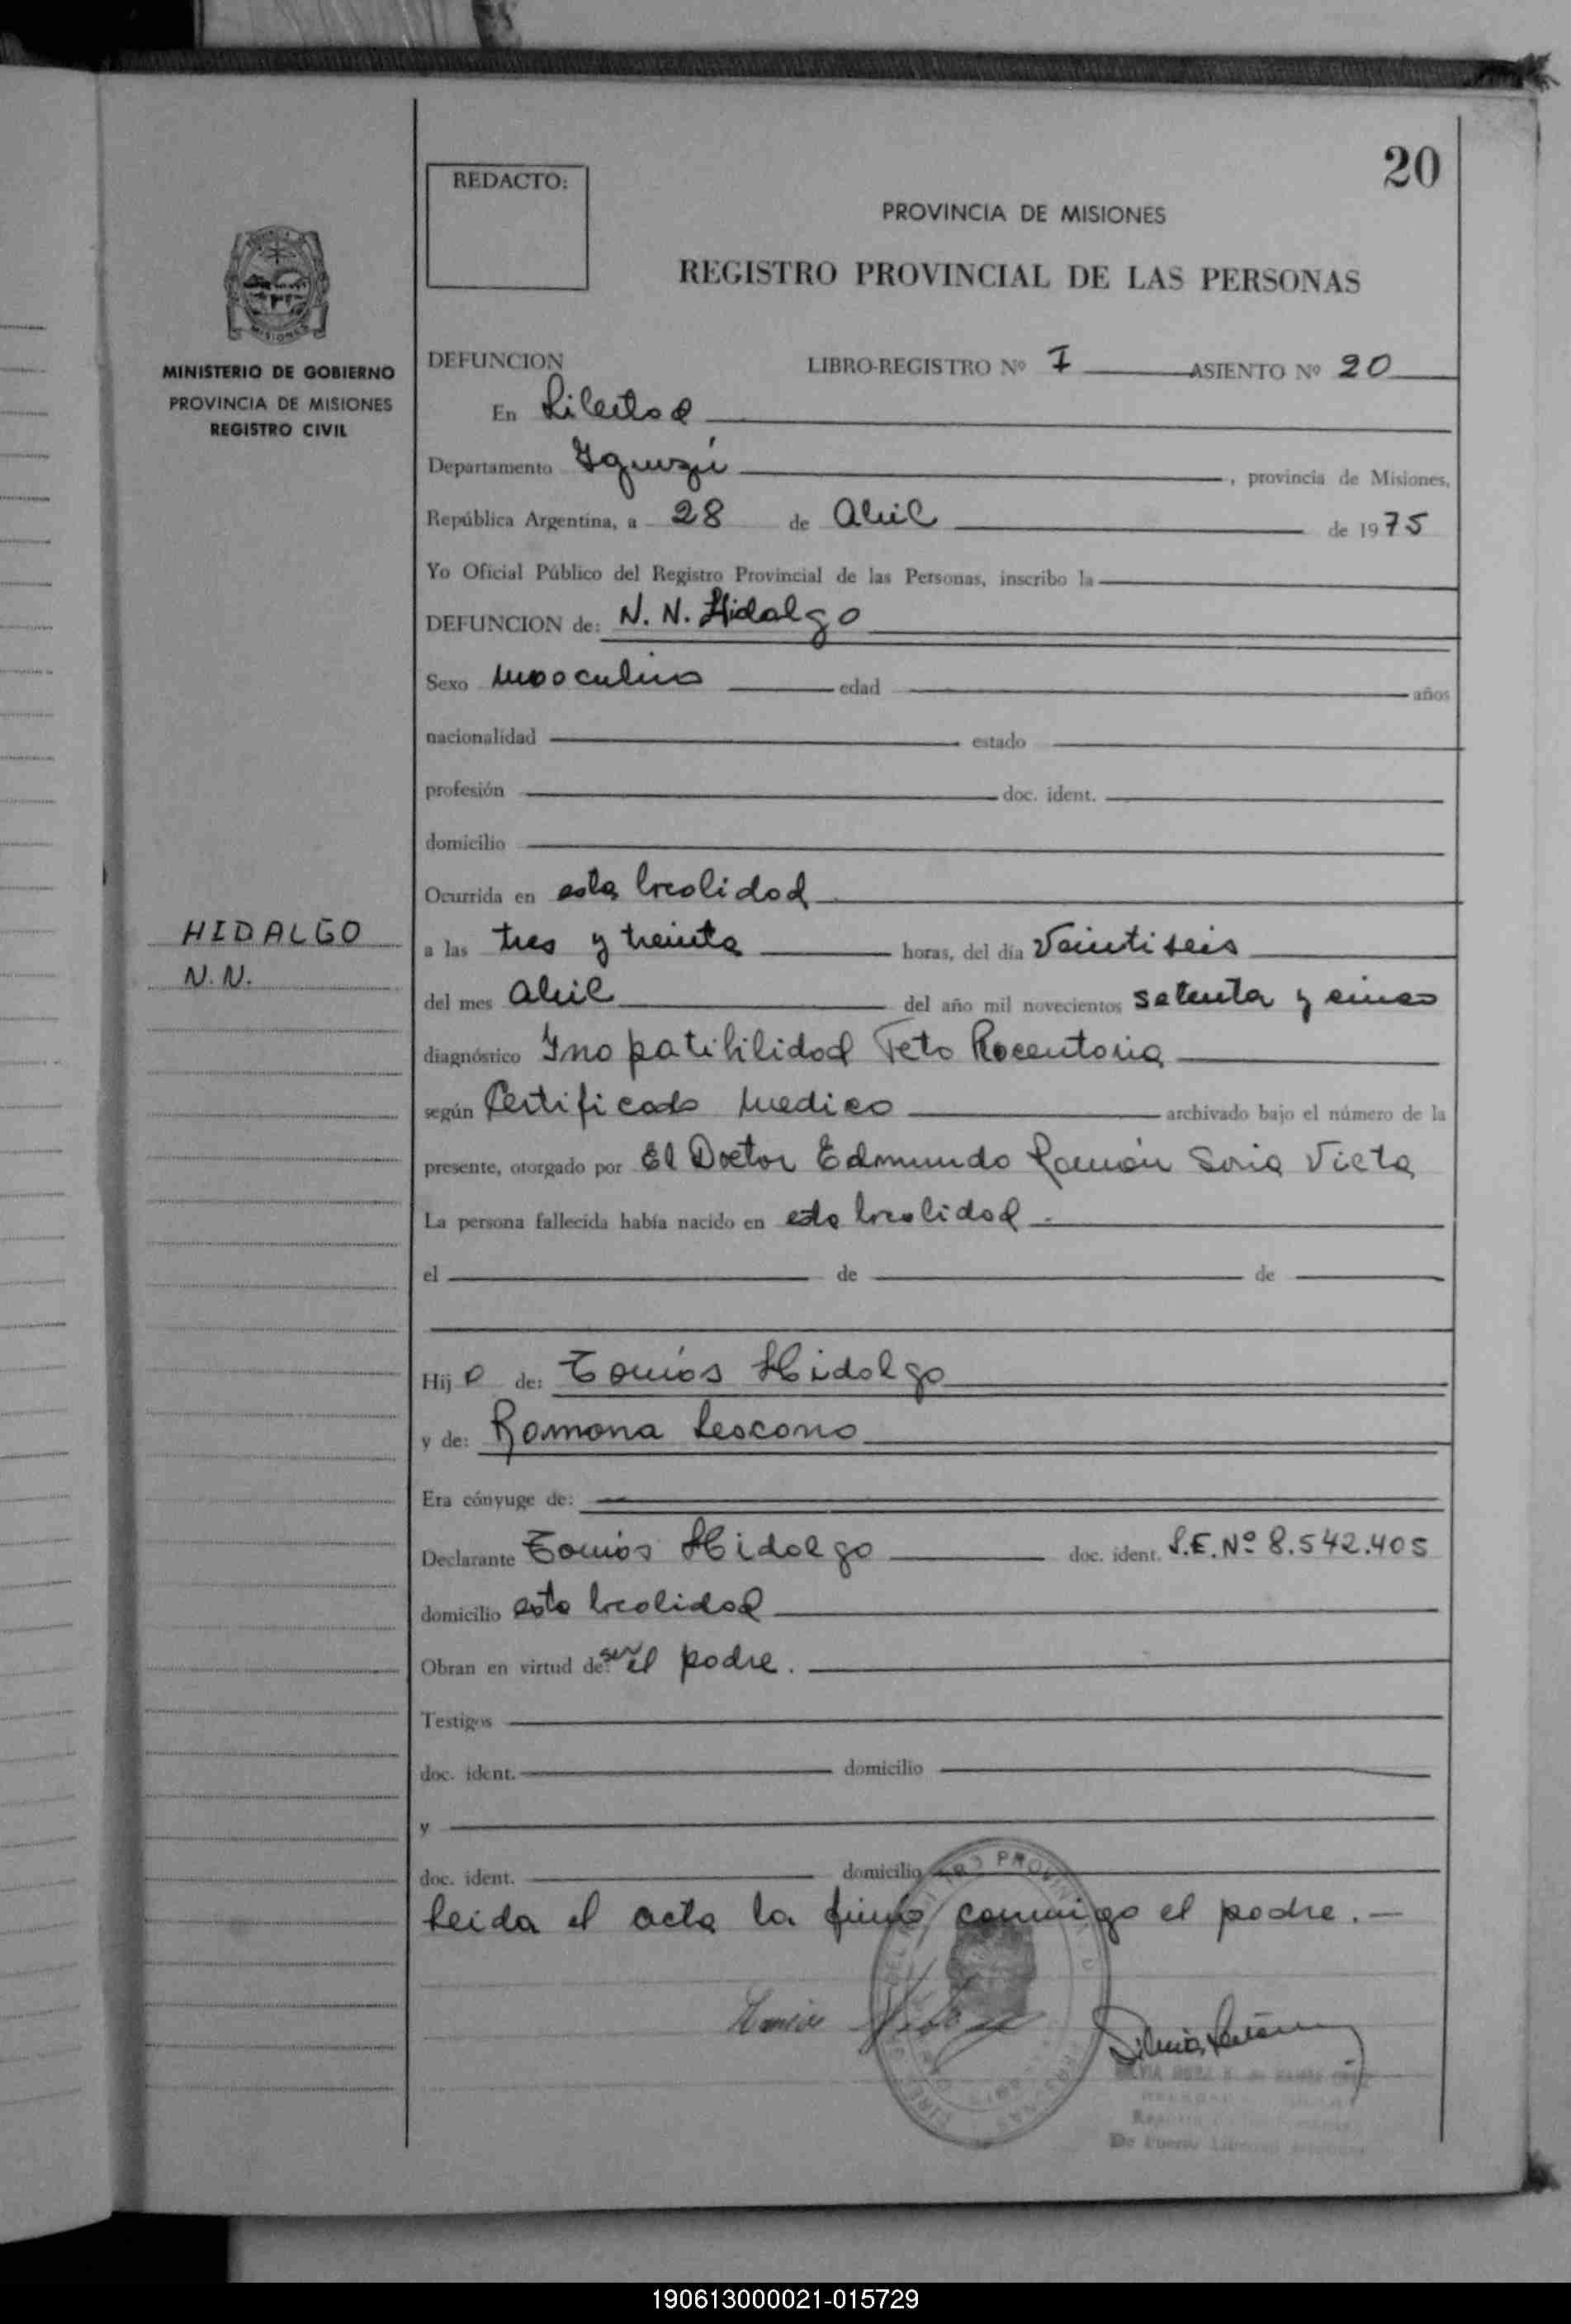 20
REDACTO:
PROVINCIA DE MISIONES
REGISTRO PROVINCIAL DE LAS PERSONAS
MISIONES
MINISTERIO DE GOBIERNO
PROVINCIA DE MISIONES
REGISTRO CIVIL
DEFUNCION LIBRO-REGISTRO Nº I ASIENTO Nº 20
En Libertad
Departamento Iguazú, provincia de Misiones,
República Argentina, a 28 de Abril de 1975
Yo Oficial Público del Registro Provincial de las Personas, inscribo la
DEFUNCION de: N. N. Hidalgo
Sexo masculino edad años
nacionalidad estado
profesión doc. ident.
domicilio
Ocurrida en esta localidad
HIDALGO
N.N.
a las tres y treinta horas, del día Veintiseis
del mes Abril del año mil novecientos setenta y cinco
diagnóstico Inopatibilidad Feto Placentaria
según Certificado Medico archivado bajo el número de la
presente, otorgado por El Doctor Edmundo Ramón Soria Vieta
La persona fallecida había nacido en esta localidad.
el de de
Hijo de: Tomás Hidalgo
y de: Ramona Lescano
Era cónyuge de:
Declarante Tomás Hidalgo doc. ident. L.E. Nº 8.542.405
domicilio esta localidad
Obran en virtud de: ser el padre.
Testigos
doc. ident. domicilio
y
doc. ident. domicilio
Leida el acta la firma conmigo el padre.—
De Puerto Libertad
190613000021-015729